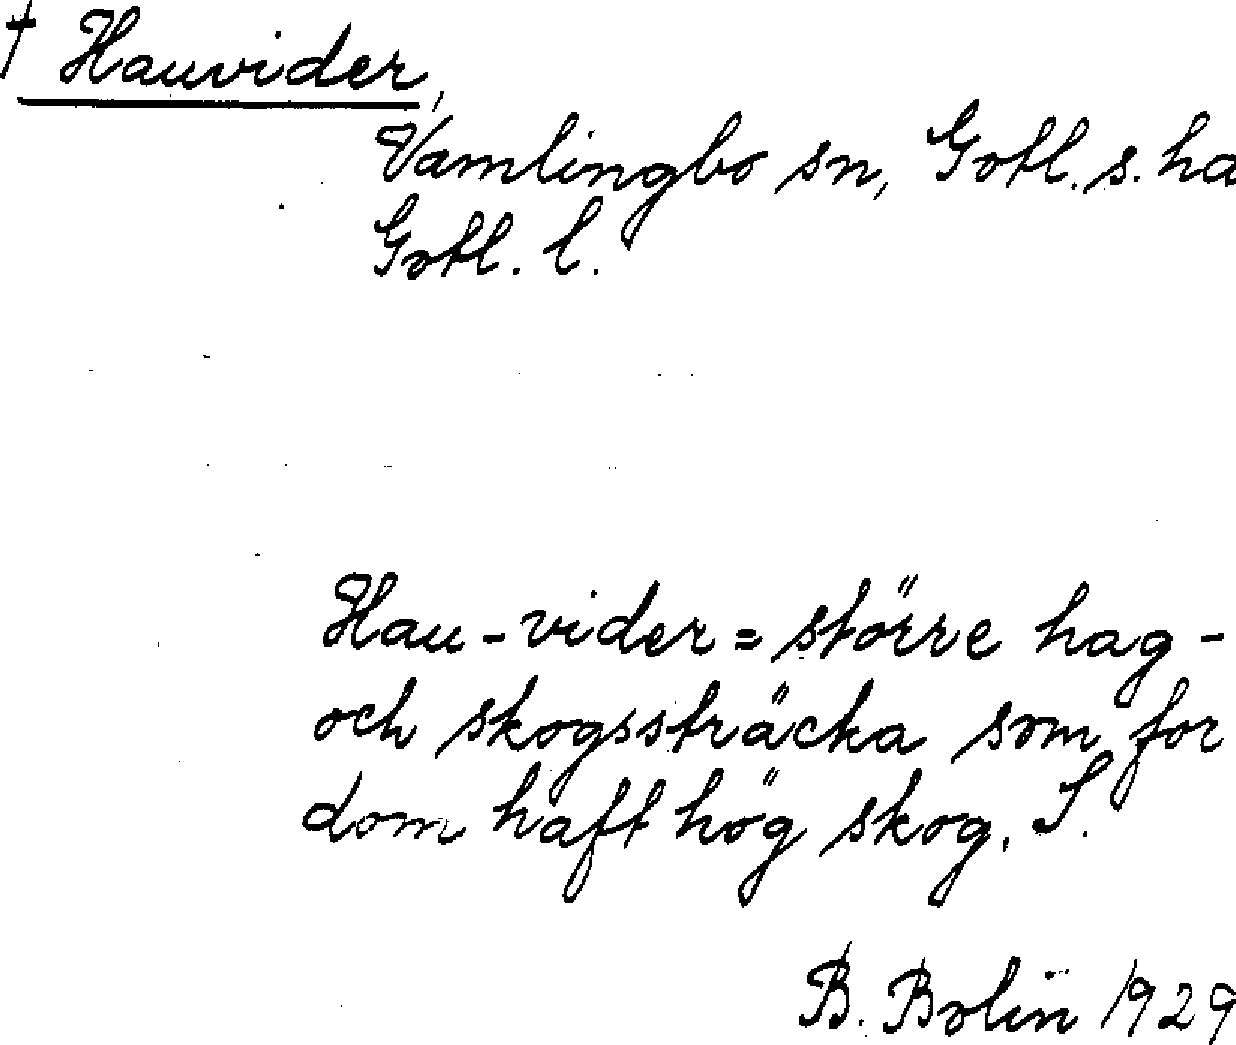 † Hauvider,
Vamlingbo sn, Gotl. s. hd
Gotl. l.
Hau-vider = större hag-
och skogssträcka som for
dom haft hög skog. S.
B. Bolin 1929